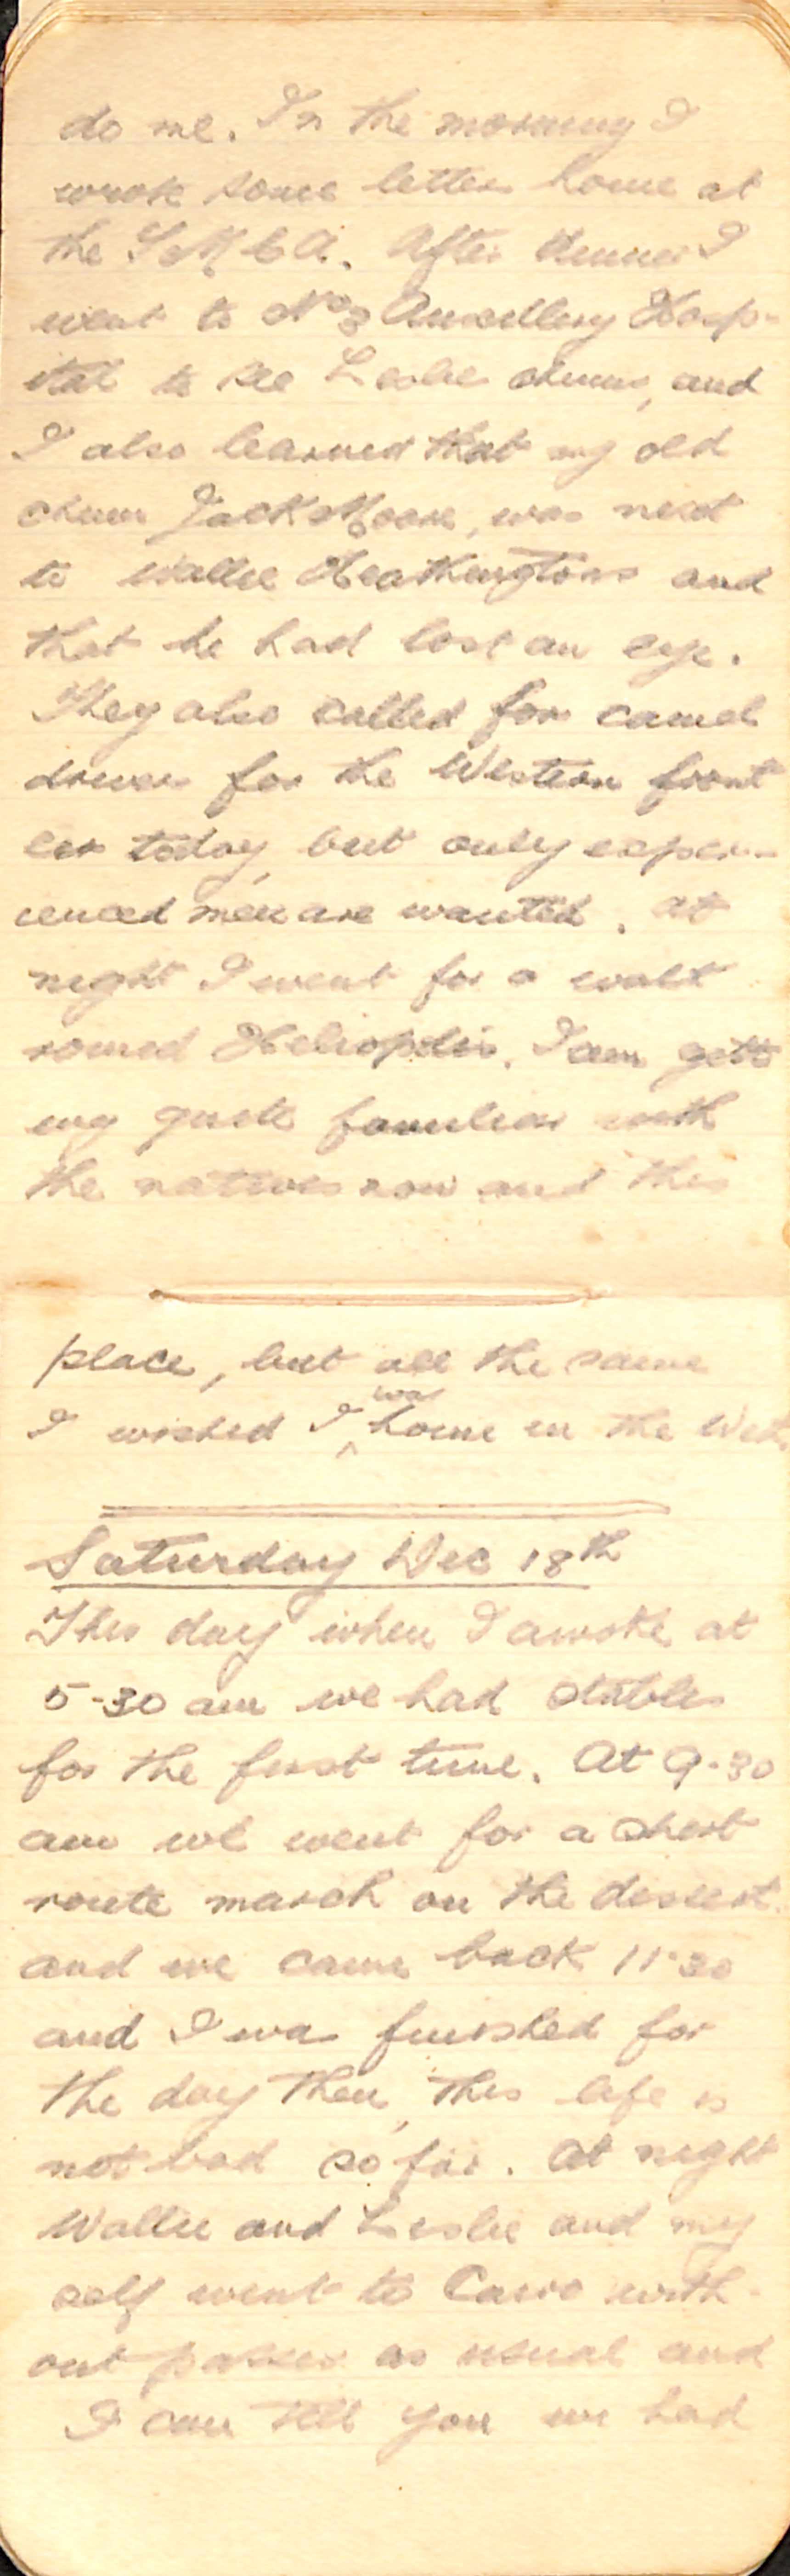 do me. In the morning I
wrote some letters home at
the Y M C A. After dinner I
went to No 3 Auxillery Hosp-
ital to see Leslie chums, and
I also learned that my old
chum Jack Moore, was next
to Wallie Heathingtons and
that he had lost an eye.
They also called for camel
drivers for the Western front
ier today, but only exper-
ienced men are wanted. At
night I went for a walk
round Heliopolis. I am gett
ing quite familiar with
the natives now and this
place, but all the same
I wished I was home in the West
Saturday Dec 18th
This day when I awoke at
5-30 am we had stables
for the first time. At 9-30
am we went for a short
route march on the dessert
and we came back 11.30
and I was finished for
the day then, this life is
not bad so far. At night
Wallie and Leslie and my
self went to Cairo with-
out passes as usual and
I can tell you we had